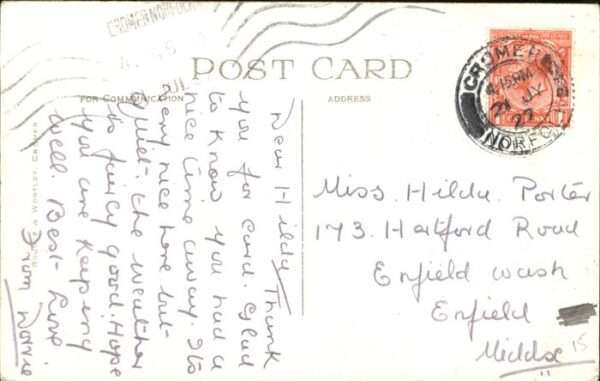 CROMER NORFOLK
POST CARD
FOR COMMUNICATION
ADDRESS
CROMER
4.15 PM
21 JY
27
NORFOLK
Dear Hilda Thank
you for Card. Glad
to know you had a
nice time away. Its
very nice here but
quiet. the weather
is fairly good. Hope
you are keeping
well. Best Love
From Dorrie
Miss. Hilda. Porter
173. Hertford Road
Enfield wash
Enfield
Middx
15